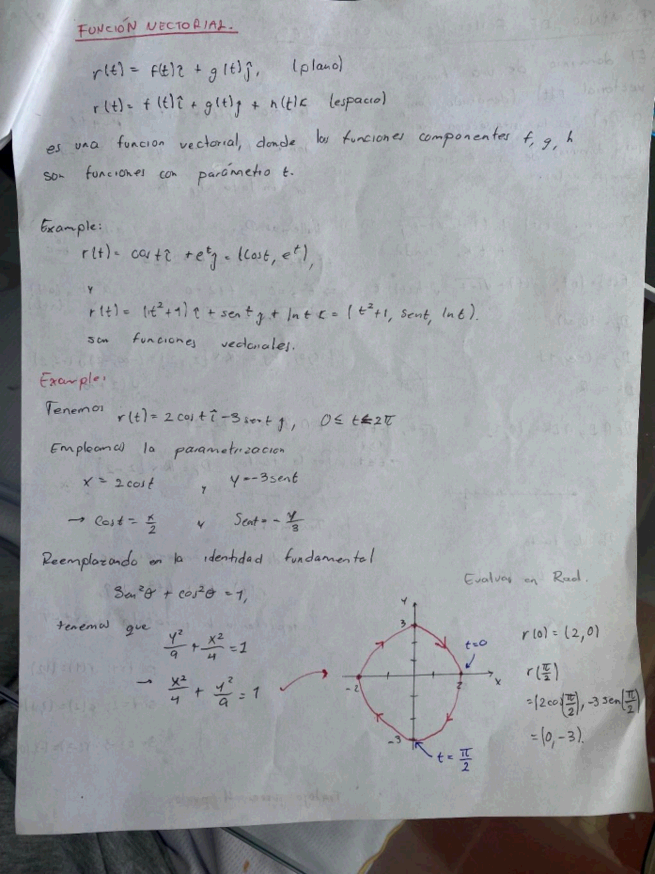 FUNCIÓN VECTORIAL.
r(t) = f(t)î + g(t)ĵ, (plano)
r(t) = f(t)î + g(t)j + h(t)k (espacio)
es una funcion vectorial, donde las funciones componentes f, g, h
son funciones con parámetro t.
Example:
r(t) = cost î + e^t j = (cost, e^t),
y
r(t) = (t²+1) î + sent j + lnt k = (t²+1, sent, lnt).
son funciones vectoriales.
Example:
Tenemos r(t) = 2cost î - 3sent j, 0 ≤ t ≤ 2π
Empleamos la parametrizacion
x = 2cost , y = -3sent
→ Cost = x/2 y Sent = - y/3
Reemplazando en la identidad fundamental
Sen²θ + cos²θ = 1,
tenemos que
y²/9 + x²/4 = 1
→ x²/4 + y²/9 = 1
y
3
t=0
-2
2
x
-3
t = π/2
Evaluar en Rad.
r(0) = (2,0)
r(π/2)
= (2cos(π/2), -3 sen(π/2))
= (0, -3).